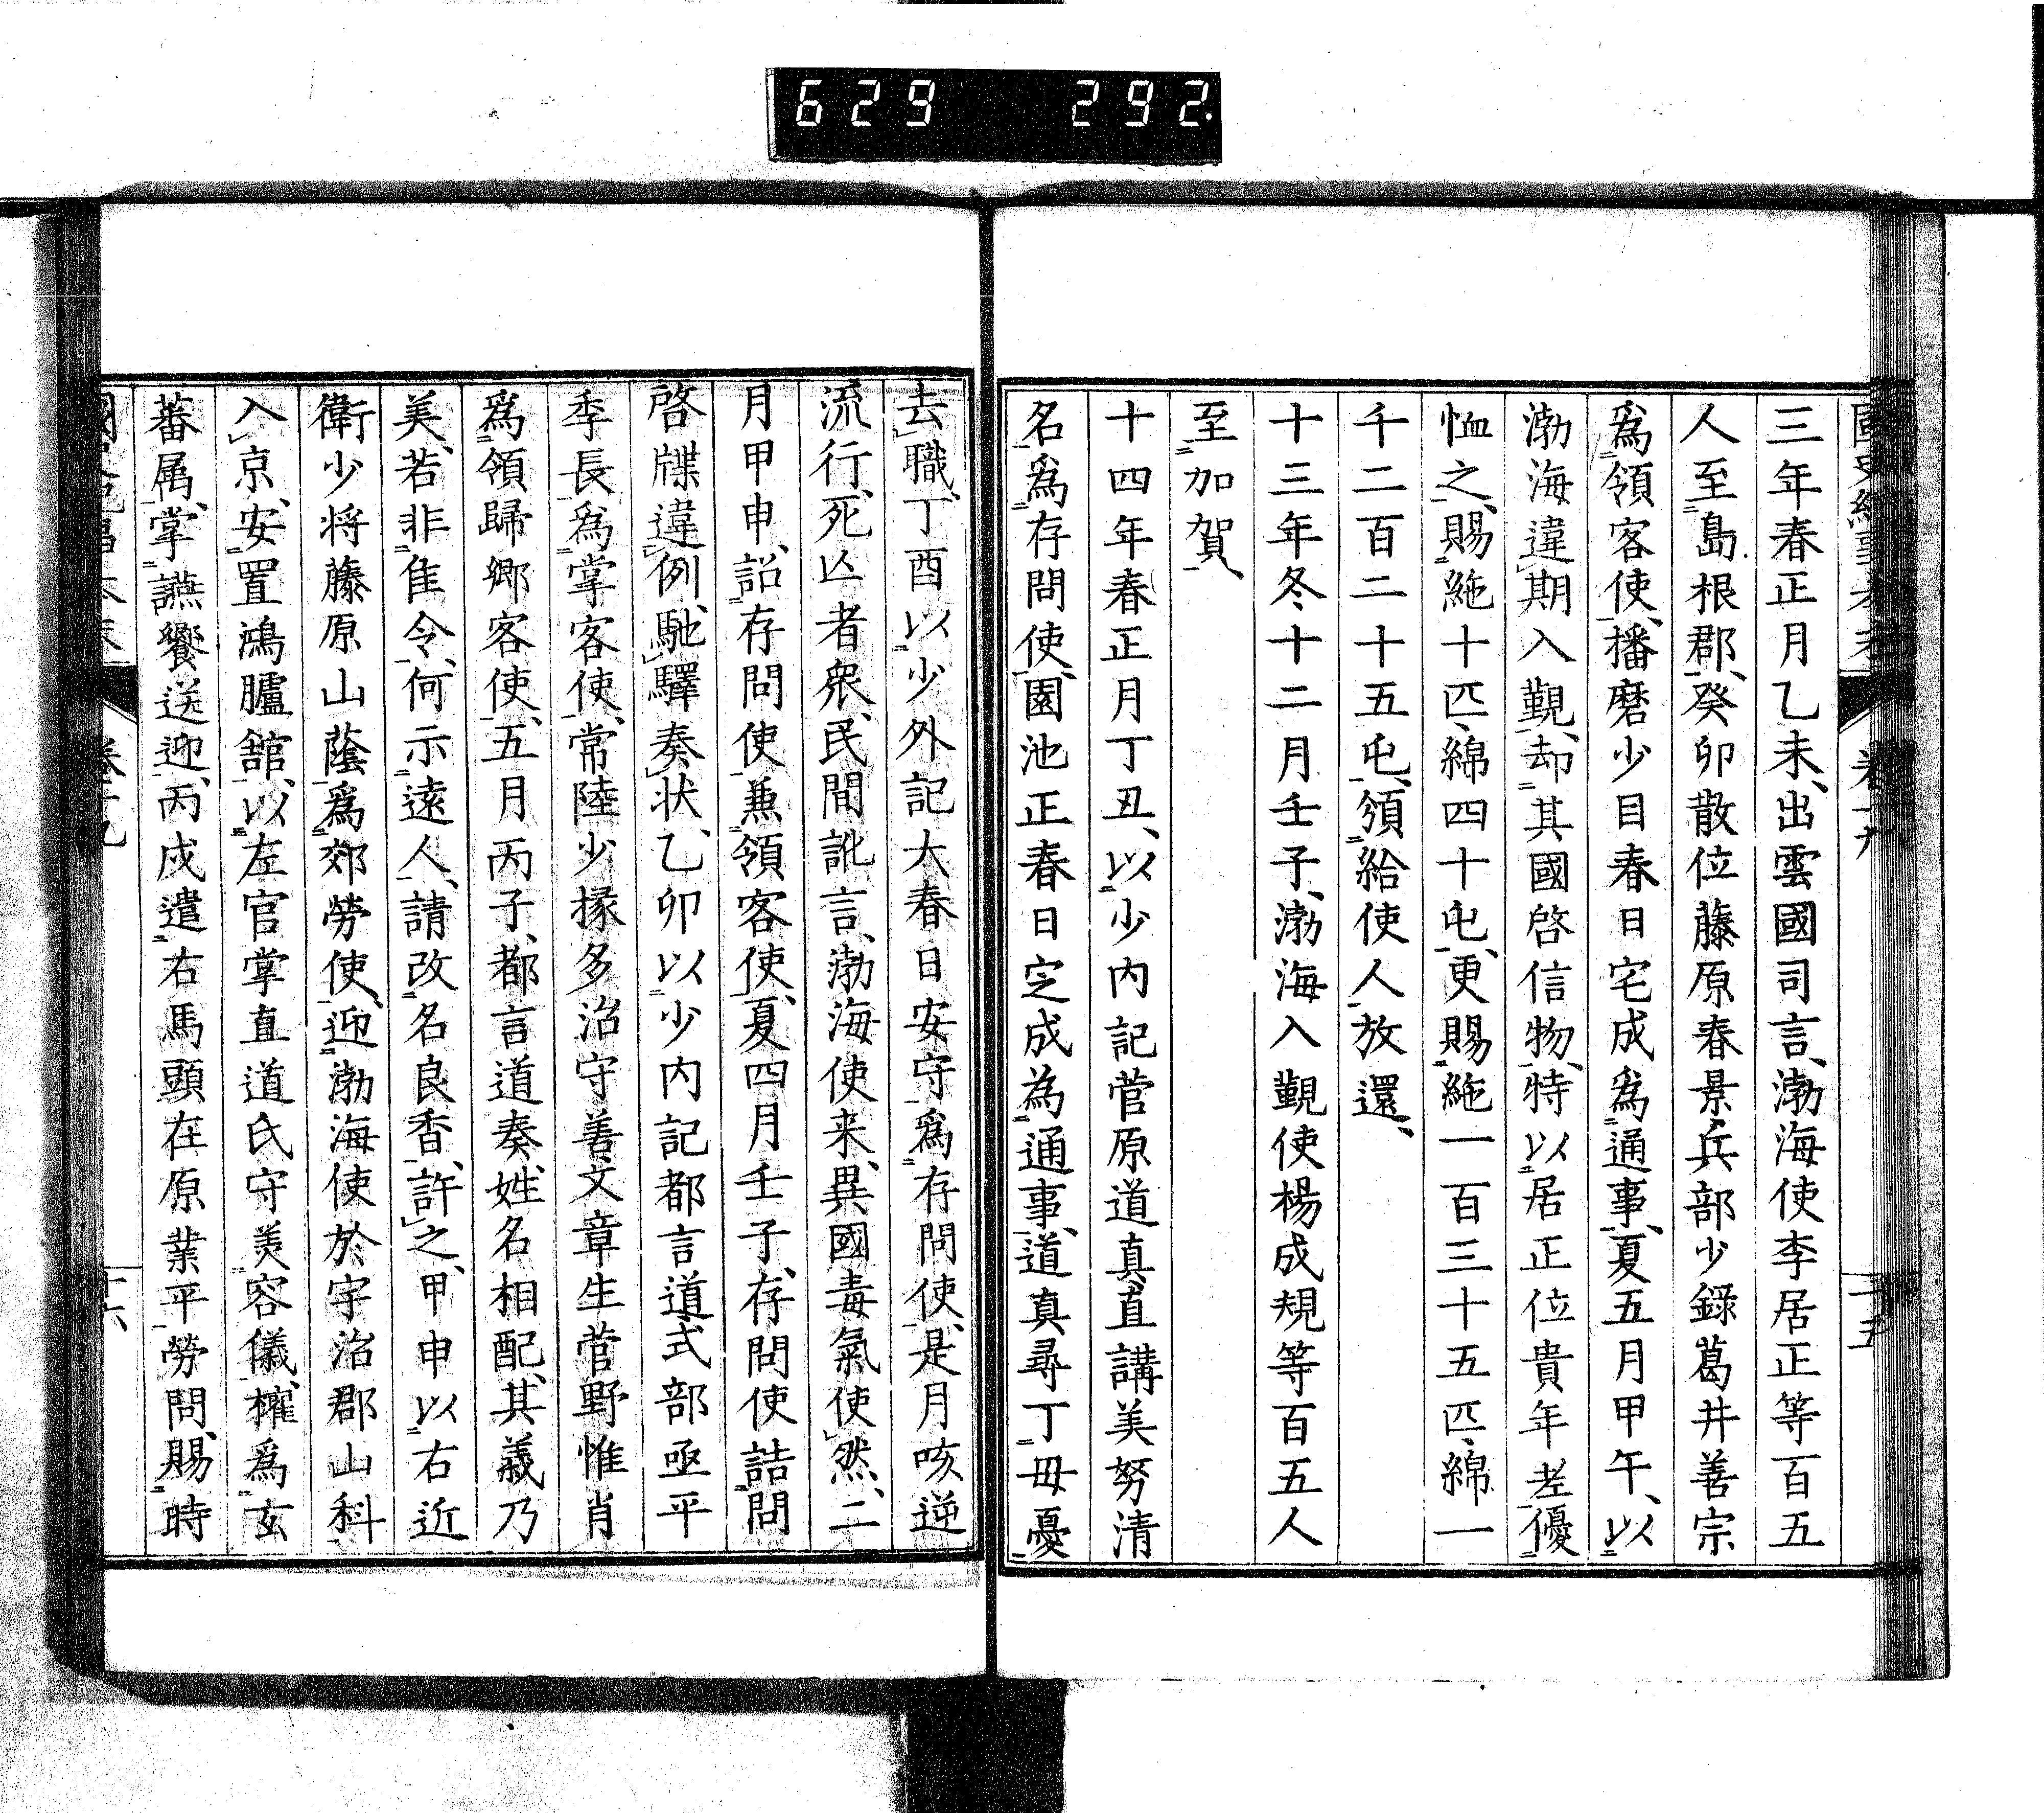 629 292
三年春正月乙未、出雲國司言、渤海使李居正等百五
人至島根郡、癸卯散位藤原春景兵部少錄葛井善宗
爲領客使、播磨少目春日宅成爲通事、夏五月甲午、以
渤海違期入覲、却其國啓信物、特以居正位貴年老優
恤之、賜絁十匹、綿四十屯、更賜絁一百三十五匹、綿一
千二百二十五屯、頒給使人放還、
十三年冬十二月壬子、渤海入覲使楊成規等百五人
至加賀、
十四年春正月丁丑、以少内記菅原道真直講美努清
名爲存問使、園池正春日宅成為通事、道真尋丁毋憂
去職、丁酉以少外記大春日安守爲存問使、是月咳逆
流行、死亾者衆、民間訛言、渤海使来、異國毒氣使然、二
月甲申、詔存問使兼領客使、夏四月壬子、存問使詰問
啓牒違例、馳驛奏状、乙卯以少内記都言道式部亟平
季長爲掌客使、常陸少掾多治守善文章生菅野惟肖
爲領歸郷客使、五月丙子、都言道奏、姓名相配、其義乃
美、若非隹令、何示遠人、請改名良香、許之、甲申以右近
衛少将藤原山蔭爲郊勞使、迎渤海使於宇治郡山科
入京、安置鴻臚舘、以左官掌直道氏守美容儀、權爲玄
蕃属、掌讌饗送迎、丙戌遣右馬頭在原業平勞問、賜時
十六